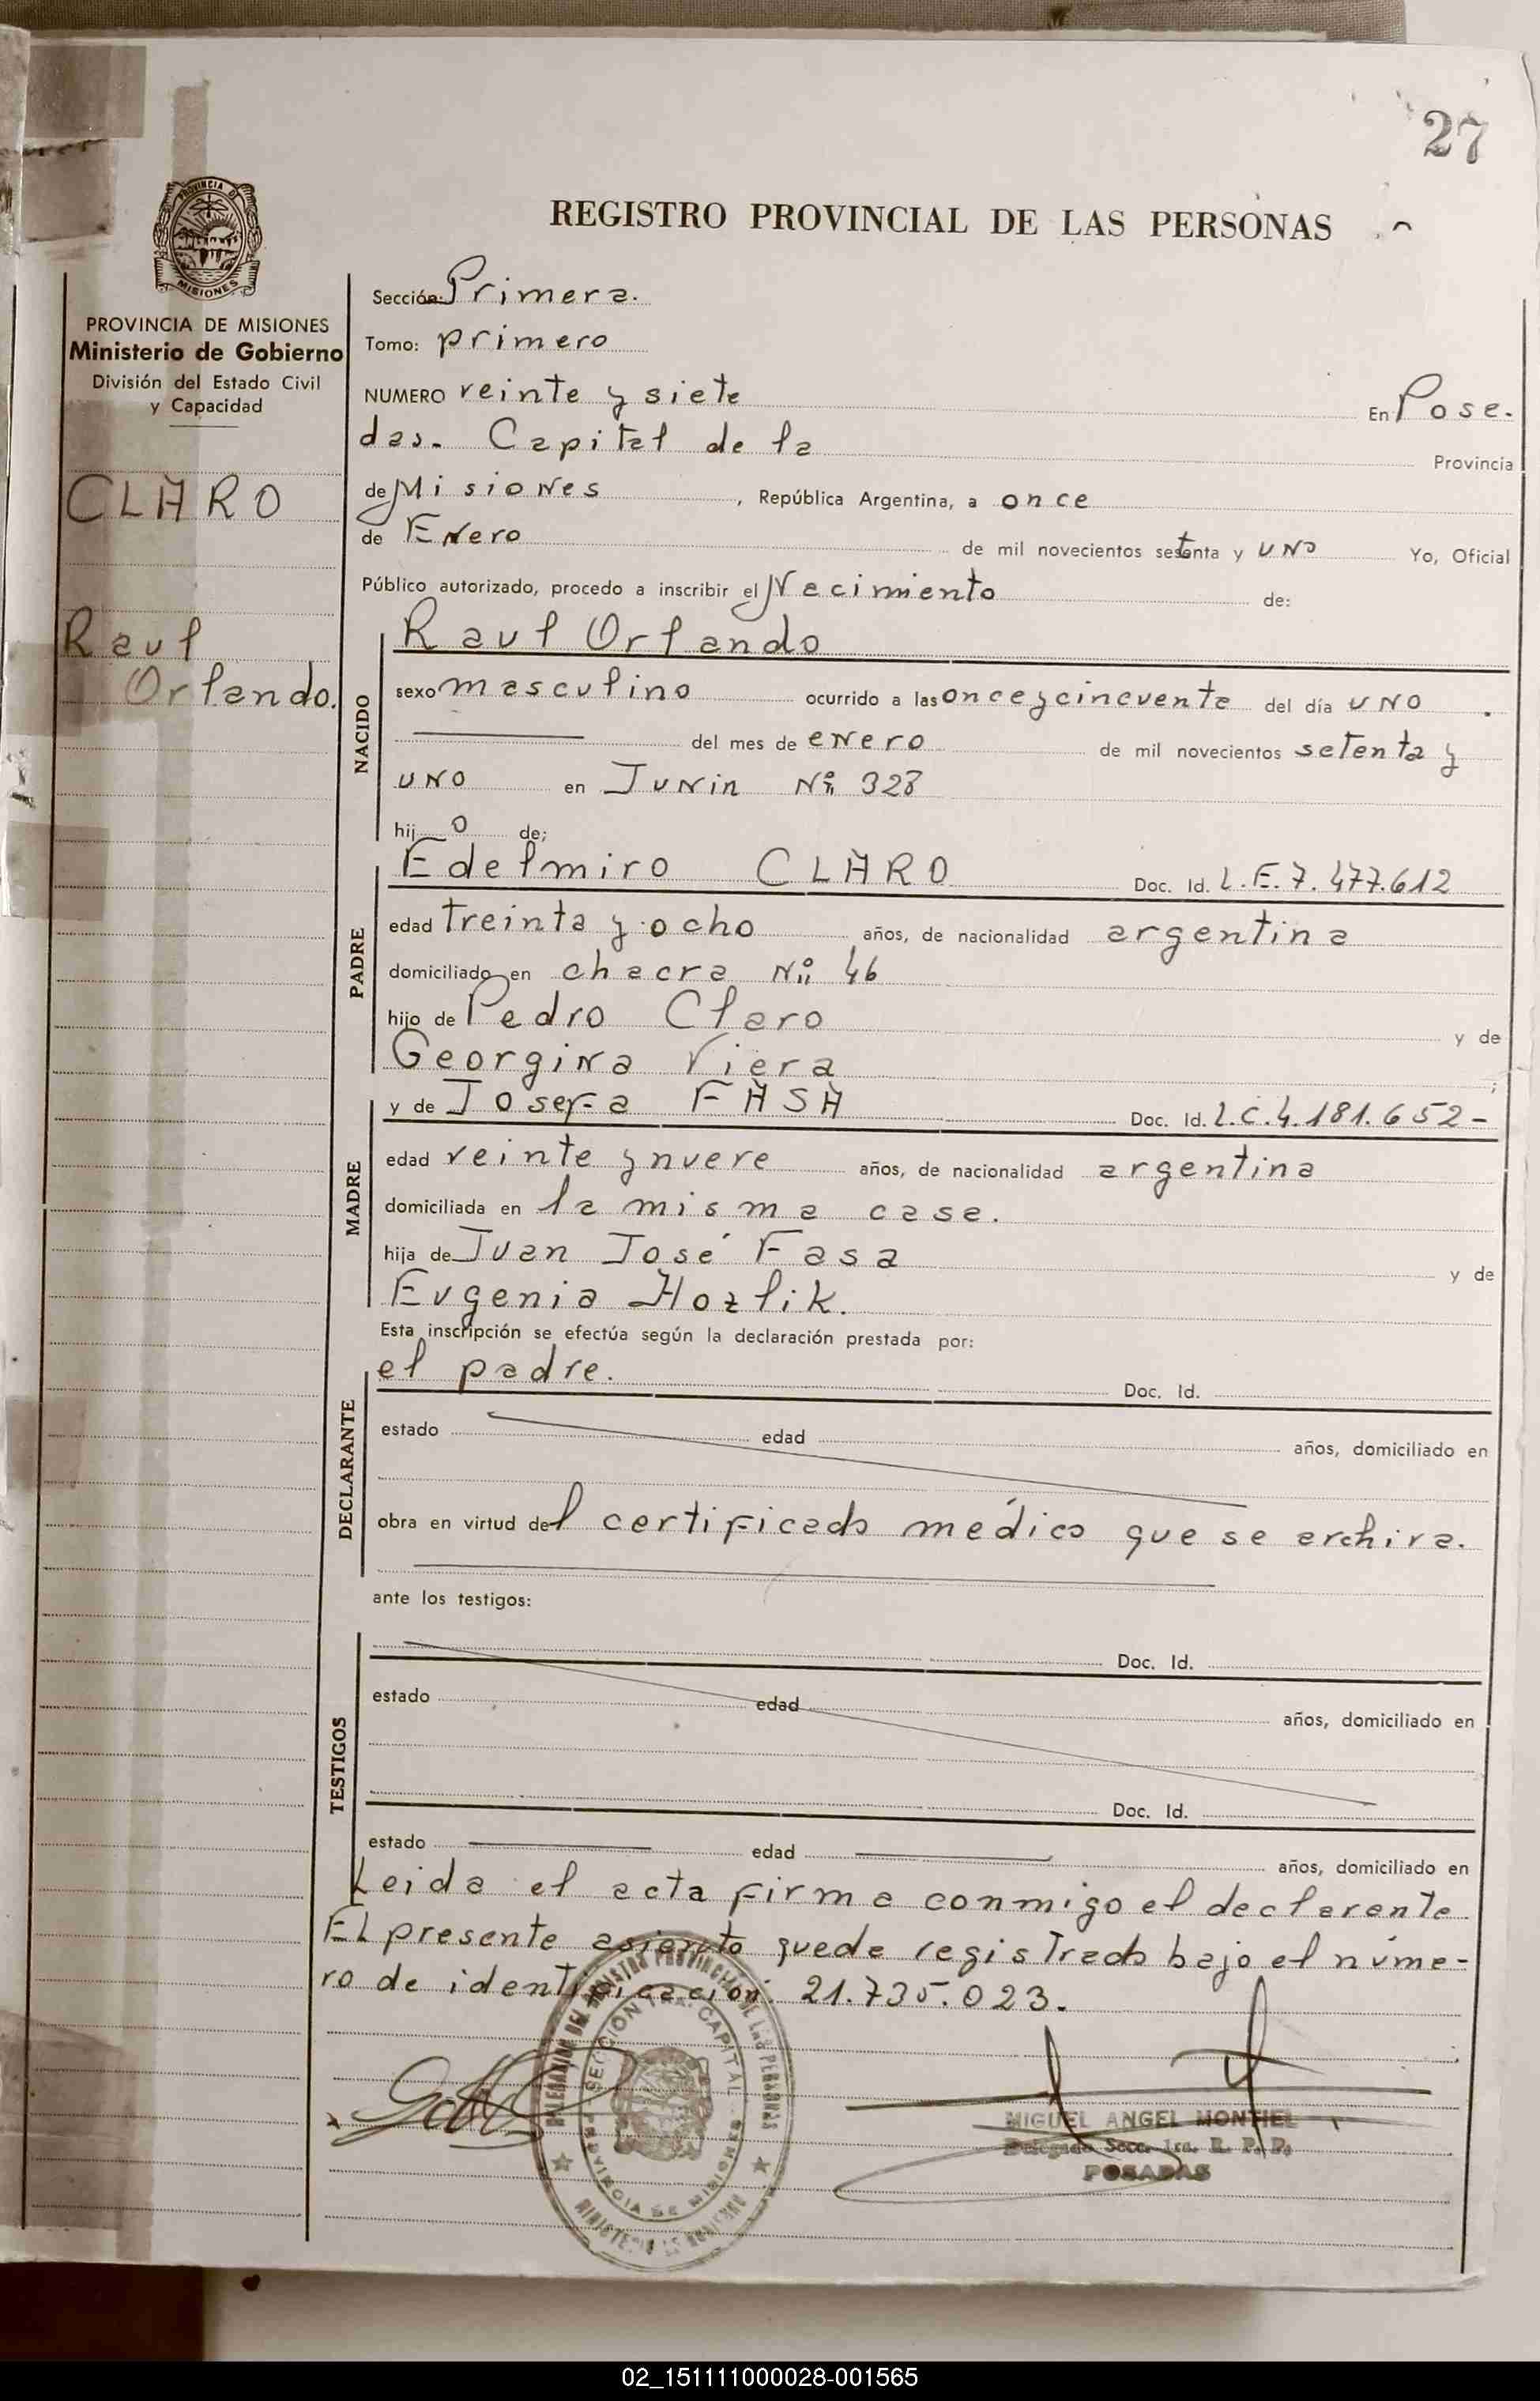 27
PROVINCIA DE
MISIONES
REGISTRO PROVINCIAL DE LAS PERSONAS
PROVINCIA DE MISIONES
Ministerio de Gobierno
División del Estado Civil
y Capacidad
CLARO
Raul
Orlando.
Sección: Primera.
Tomo: primero
NUMERO veinte y siete En Posa-
das. Capital de la Provincia
de Misiones, República Argentina, a once
de Enero de mil novecientos setenta y uno Yo, Oficial
Público autorizado, procedo a inscribir el Nacimiento de:
NACIDO
Raul Orlando
sexo masculino ocurrido a las once y cincuenta del día uno
del mes de enero de mil novecientos setenta y
uno en Junin Nº 328
hijo de;
PADRE
Edelmiro CLARO Doc. Id. L.E. 7.477.612
edad treinta y ocho años, de nacionalidad argentina
domiciliado en chacra Nº 46
hijo de Pedro Claro y de
Georgina Viera
MADRE
y de Josefa FASA Doc. Id. L.C. 4.181.652-
edad veinte y nueve años, de nacionalidad argentina
domiciliada en la misma casa.
hija de Juan José Fasa y de
Eugenia Hozlik.
Esta inscripción se efectúa según la declaración prestada por:
DECLARANTE
el padre. Doc. Id.
estado edad años, domiciliado en
obra en virtud del certificado médico que se archiva.
ante los testigos:
TESTIGOS
Doc. Id.
estado edad años, domiciliado en
Doc. Id.
estado edad años, domiciliado en
Leida el acta firma conmigo el declarante
El presente asiento queda registrado bajo el núme-
ro de identificación: 21.735.023.
DELEGADO DEL REGISTRO PROVINCIAL DE LAS PERSONAS
SECCION 1ra. CAPITAL
PROVINCIA DE MISIONES
MINISTERIO DE GOBIERNO
MIGUEL ANGEL MONTIEL
Delegado Secc. 1ra. R. P. P.
POSADAS
02_151111000028-001565